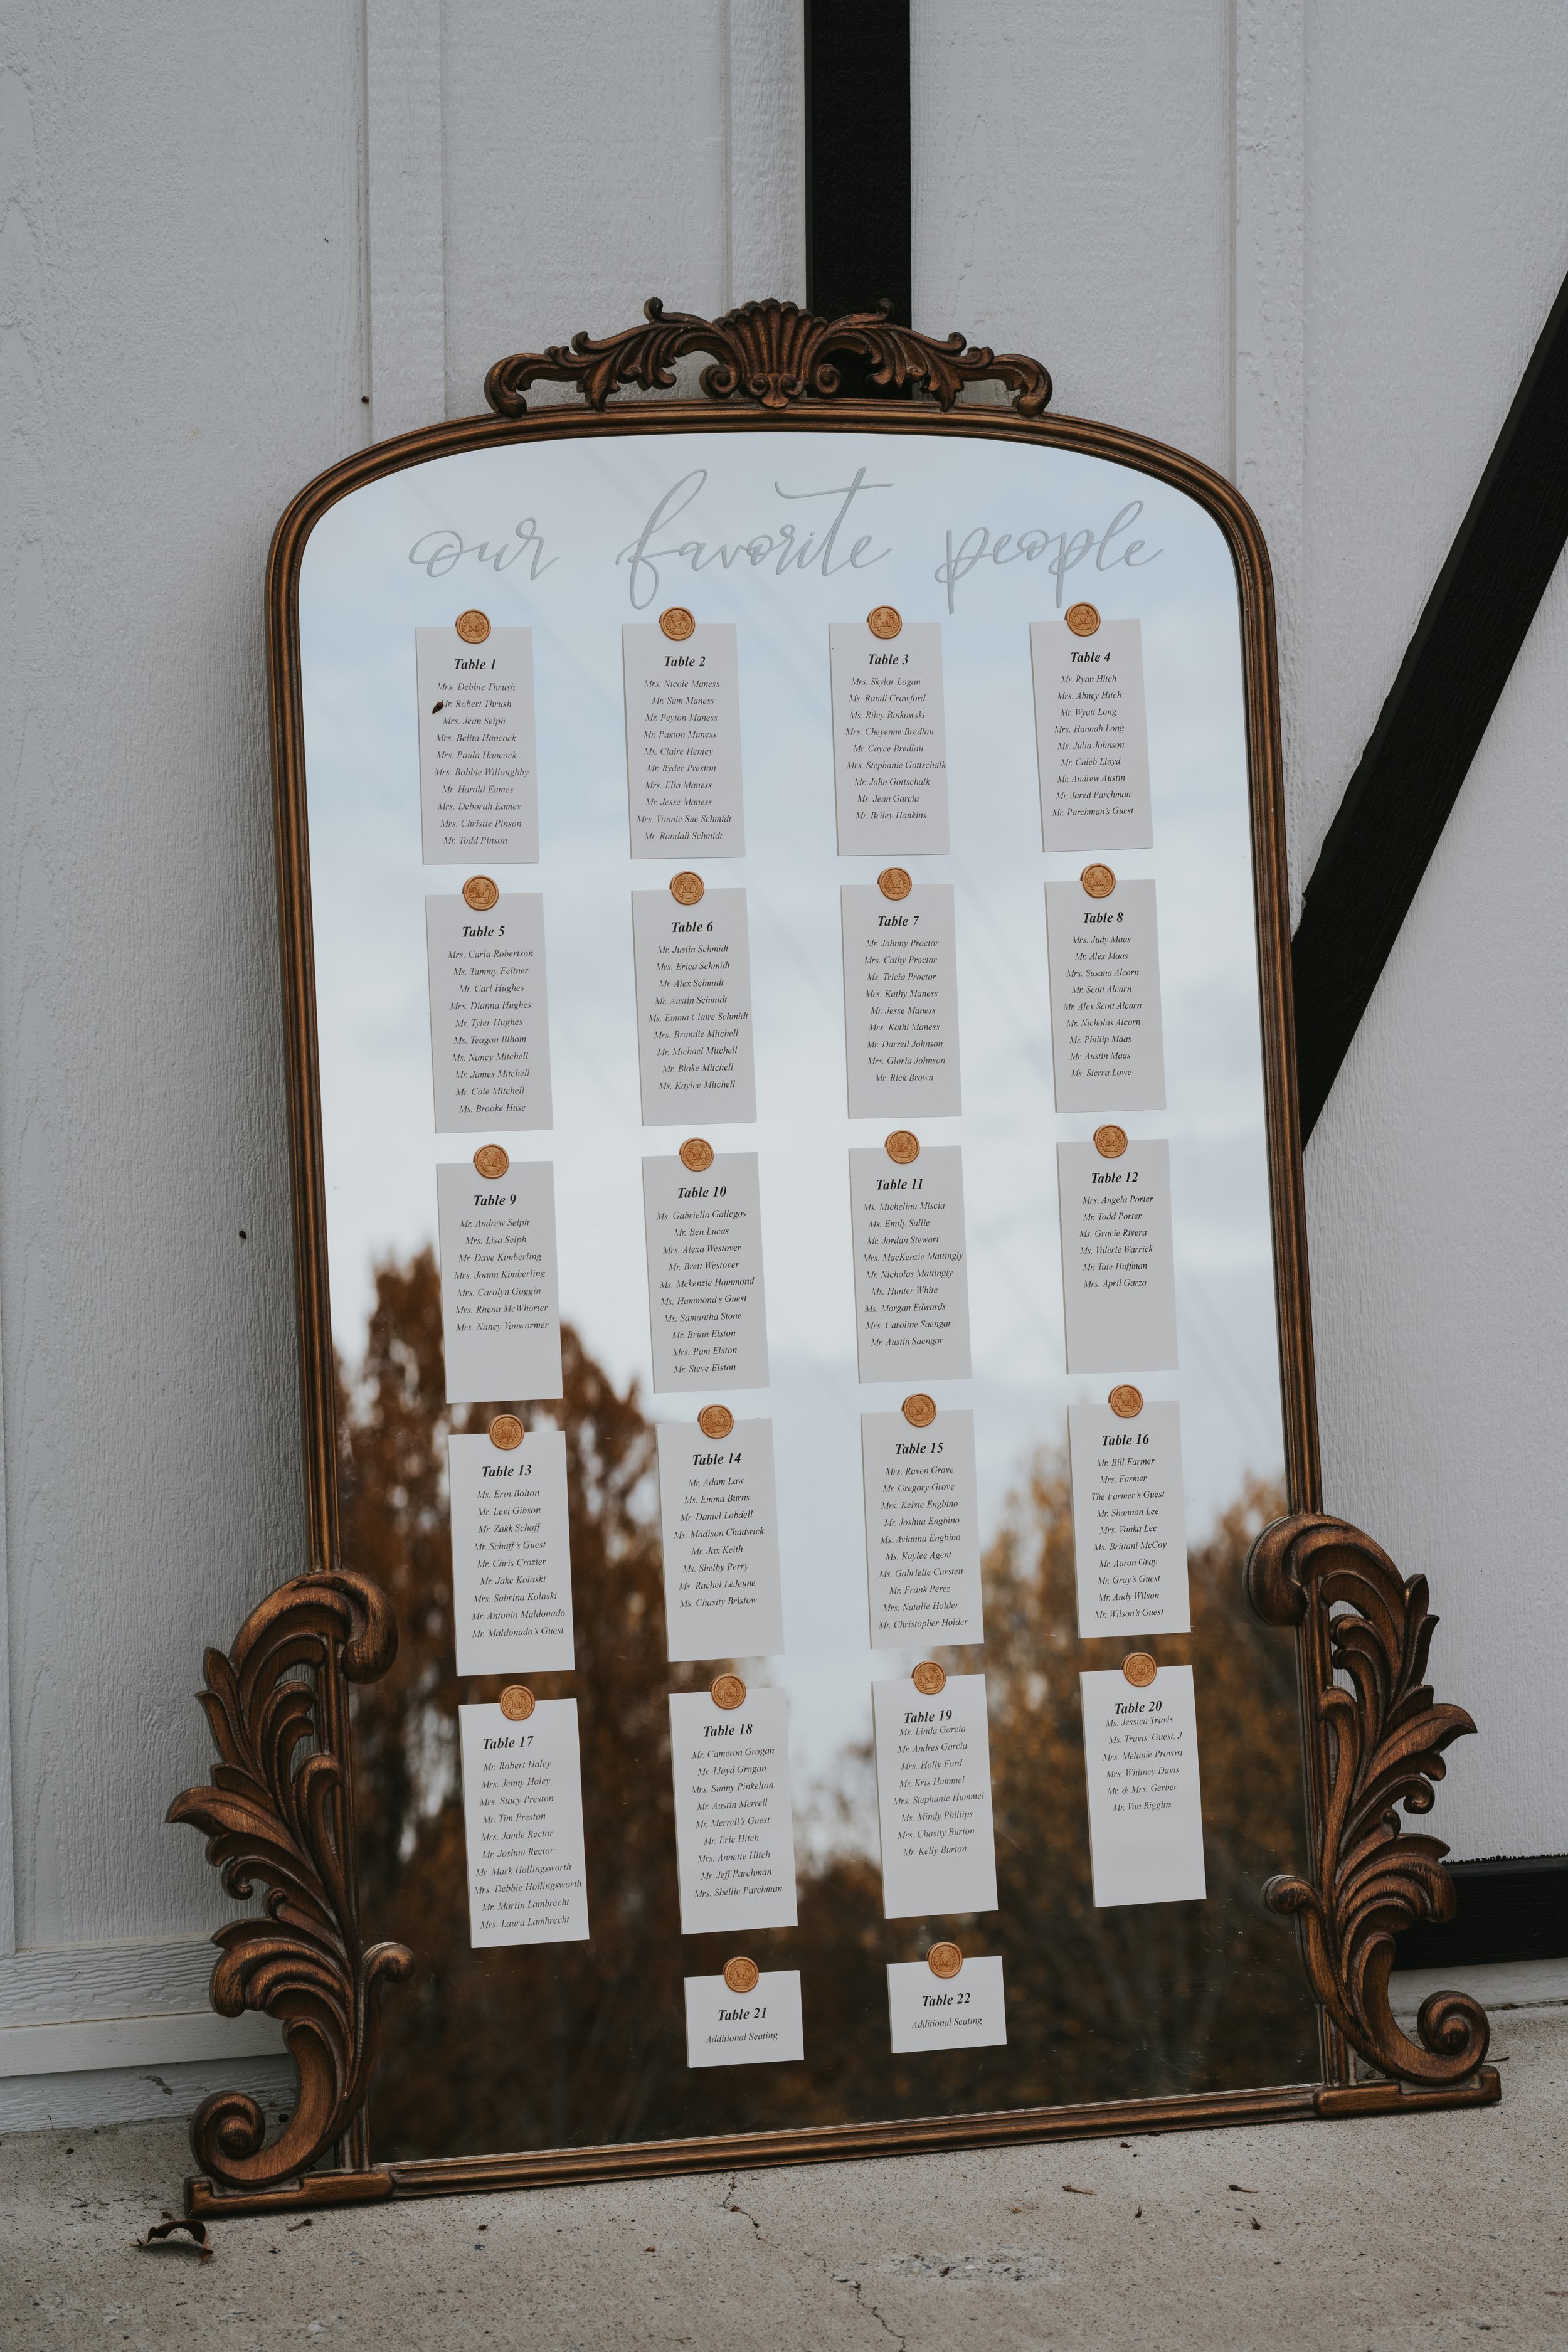 our favorite people
Table 1
Mrs. Debbie Thrush
Mr. Robert Thrush
Mrs. Jean Selph
Mrs. Belita Hancock
Mrs. Paula Hancock
Mrs. Bobbie Willoughby
Mr. Harold Eames
Mrs. Deborah Eames
Mrs. Christie Pinson
Mr. Todd Pinson
Table 2
Mrs. Nicole Maness
Mr. Sam Maness
Mr. Peyton Maness
Mr. Paxton Maness
Ms. Claire Henley
Mr. Ryder Preston
Mrs. Ella Maness
Mr. Jesse Maness
Mrs. Vonnie Sue Schmidt
Mr. Randall Schmidt
Table 3
Mrs. Skylar Logan
Ms. Randi Crawford
Ms. Riley Binkowski
Mrs. Cheyenne Bredlau
Mr. Cayce Bredlau
Mrs. Stephanie Gottschalk
Mr. John Gottschalk
Ms. Jean Garcia
Mr. Briley Hankins
Table 4
Mr. Ryan Hitch
Mrs. Abney Hitch
Mr. Wyatt Long
Mrs. Hannah Long
Ms. Julia Johnson
Mr. Caleb Lloyd
Mr. Andrew Austin
Mr. Jared Parchman
Mr. Parchman's Guest
Table 5
Mrs. Carla Robertson
Ms. Tammy Feltner
Mr. Carl Hughes
Mrs. Dianna Hughes
Mr. Tyler Hughes
Ms. Teagan Blhom
Ms. Nancy Mitchell
Mr. James Mitchell
Mr. Cole Mitchell
Ms. Brooke Huse
Table 6
Mr. Justin Schmidt
Mrs. Erica Schmidt
Mr. Alex Schmidt
Mr. Austin Schmidt
Ms. Emma Claire Schmidt
Mrs. Brandie Mitchell
Mr. Michael Mitchell
Mr. Blake Mitchell
Ms. Kaylee Mitchell
Table 7
Mr. Johnny Proctor
Mrs. Cathy Proctor
Ms. Tricia Proctor
Mrs. Kathy Maness
Mr. Jesse Maness
Mrs. Kathi Maness
Mr. Darrell Johnson
Mrs. Gloria Johnson
Mr. Rick Brown
Table 8
Mrs. Judy Maas
Mr. Alex Maas
Mrs. Susana Alcorn
Mr. Scott Alcorn
Mr. Alex Scott Alcorn
Mr. Nicholas Alcorn
Mr. Phillip Maas
Mr. Austin Maas
Ms. Sierra Lowe
Table 9
Mr. Andrew Selph
Mrs. Lisa Selph
Mr. Dave Kimberling
Mrs. Joann Kimberling
Mrs. Carolyn Goggin
Mrs. Rhena McWhorter
Mrs. Nancy Vanwormer
Table 10
Ms. Gabriella Gallegos
Mr. Ben Lucas
Mrs. Alexa Westover
Mr. Brett Westover
Ms. Mckenzie Hammond
Ms. Hammond's Guest
Ms. Samantha Stone
Mr. Brian Elston
Mrs. Pam Elston
Mr. Steve Elston
Table 11
Ms. Michelina Miscia
Ms. Emily Sallie
Mr. Jordan Stewart
Mrs. MacKenzie Mattingly
Mr. Nicholas Mattingly
Ms. Hunter White
Ms. Morgan Edwards
Mrs. Caroline Saengar
Mr. Austin Saengar
Table 12
Mrs. Angela Porter
Mr. Todd Porter
Ms. Gracie Rivera
Ms. Valerie Warrick
Mr. Tate Huffman
Mrs. April Garza
Table 13
Ms. Erin Bolton
Mr. Levi Gibson
Mr. Zakk Schaff
Mr. Schaff's Guest
Mr. Chris Crozier
Mr. Jake Kolaski
Mrs. Sabrina Kolaski
Mr. Antonio Maldonado
Mr. Maldonado's Guest
Table 14
Mr. Adam Law
Ms. Emma Burns
Mr. Daniel Lobdell
Ms. Madison Chadwick
Mr. Jax Keith
Ms. Shelby Perry
Ms. Rachel LeJeune
Ms. Chasity Bristow
Table 15
Mrs. Raven Grove
Mr. Gregory Grove
Mrs. Kelsie Engbino
Mr. Joshua Engbino
Ms. Avianna Engbino
Ms. Kaylee Agent
Ms. Gabrielle Carsten
Mr. Frank Perez
Mrs. Natalie Holder
Mr. Christopher Holder
Table 16
Mr. Bill Farmer
Mrs. Farmer
The Farmer's Guest
Mr. Shannon Lee
Mrs. Vonka Lee
Ms. Brittani McCoy
Mr. Aaron Gray
Mr. Gray's Guest
Mr. Andy Wilson
Mr. Wilson's Guest
Table 17
Mr. Robert Haley
Mrs. Jenny Haley
Mrs. Stacy Preston
Mr. Tim Preston
Mrs. Jamie Rector
Mr. Joshua Rector
Mr. Mark Hollingsworth
Mrs. Debbie Hollingsworth
Mr. Martin Lambrecht
Mrs. Laura Lambrecht
Table 18
Mr. Cameron Grogan
Mr. Lloyd Grogan
Mrs. Sunny Pinkelton
Mr. Austin Merrell
Mr. Merrell's Guest
Mr. Eric Hitch
Mrs. Annette Hitch
Mr. Jeff Parchman
Mrs. Shellie Parchman
Table 19
Ms. Linda Garcia
Mr. Andres Garcia
Mrs. Holly Ford
Mr. Kris Hummel
Mrs. Stephanie Hummel
Ms. Mindy Phillips
Mrs. Chasity Burton
Mr. Kelly Burton
Table 20
Ms. Jessica Travis
Ms. Travis' Guest, J
Mrs. Melanie Provost
Mrs. Whitney Davis
Mr. & Mrs. Gerber
Mr. Van Riggins
Table 21
Additional Seating
Table 22
Additional Seating